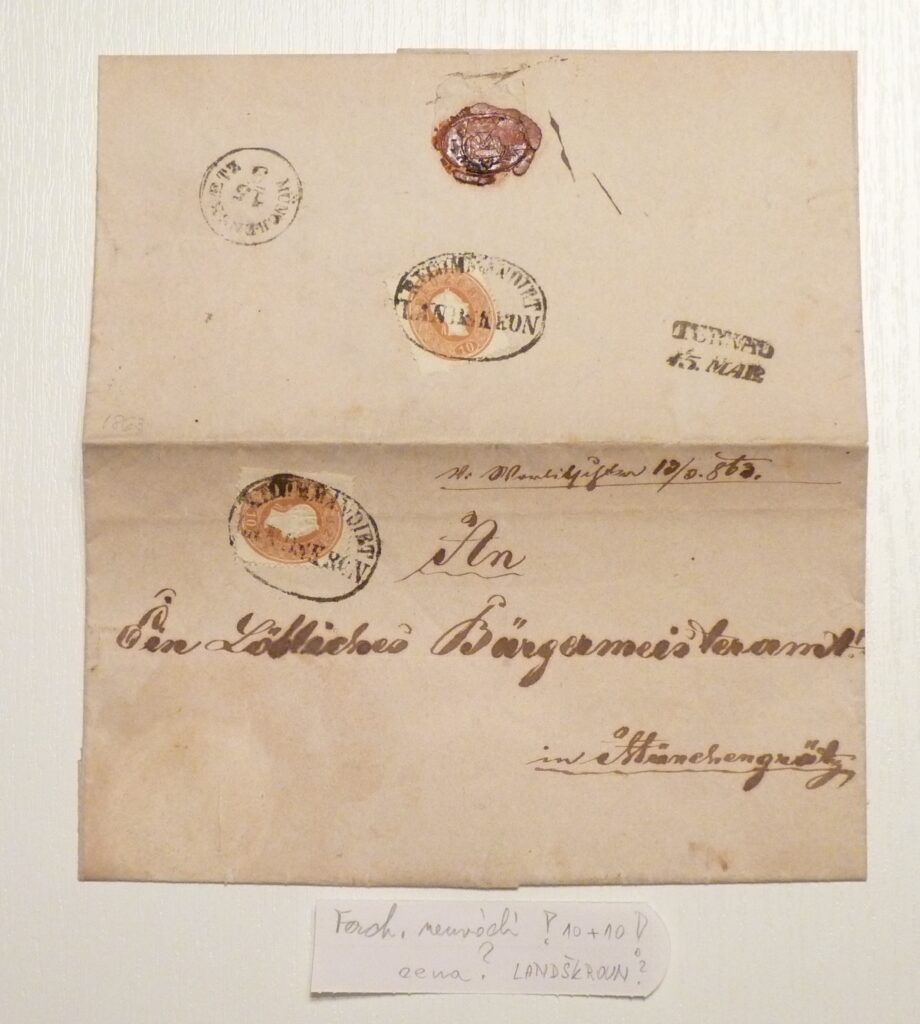 MÜNCHENGRÆTZ
15
RECOMMANDIRT
LANDSKRON
10
TURNAU
15. MAR
1863
RECOMMANDIRT
LANDSKRON
10
An
Ein Löbliches Bürgermeisteramt
in Münchengrätz
Ferch. neuvádí ! 10+10 !
cena? LANDŠKROUN?